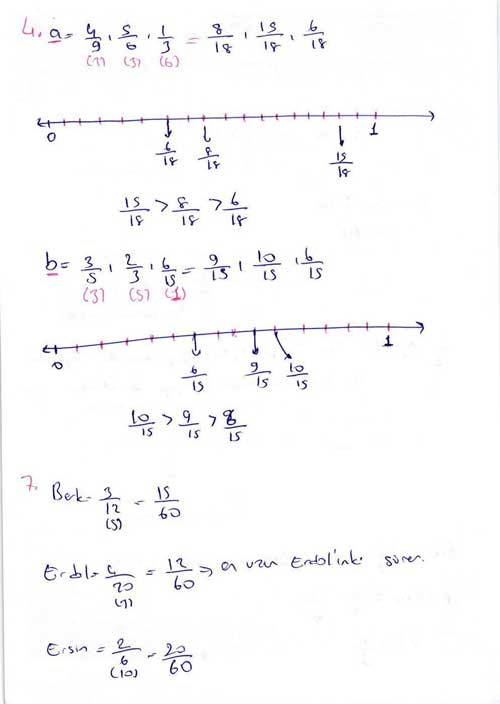 4. a = 4/9, 5/6, 1/3 = 8/18, 15/18, 6/18
(2) (3) (6)
0 1
6/18 8/18 15/18
15/18 > 8/18 > 6/18
b = 3/5, 2/3, 6/15 = 9/15, 10/15, 6/15
(3) (5) (1)
0 1
6/15 9/15 10/15
10/15 > 9/15 > 6/15
7. Berk = 3/12 = 15/60
(5)
Erdal = 4/20 = 12/60 => en uzun Erdal'ınki sürer.
(3)
Ersin = 2/6 = 20/60
(10)